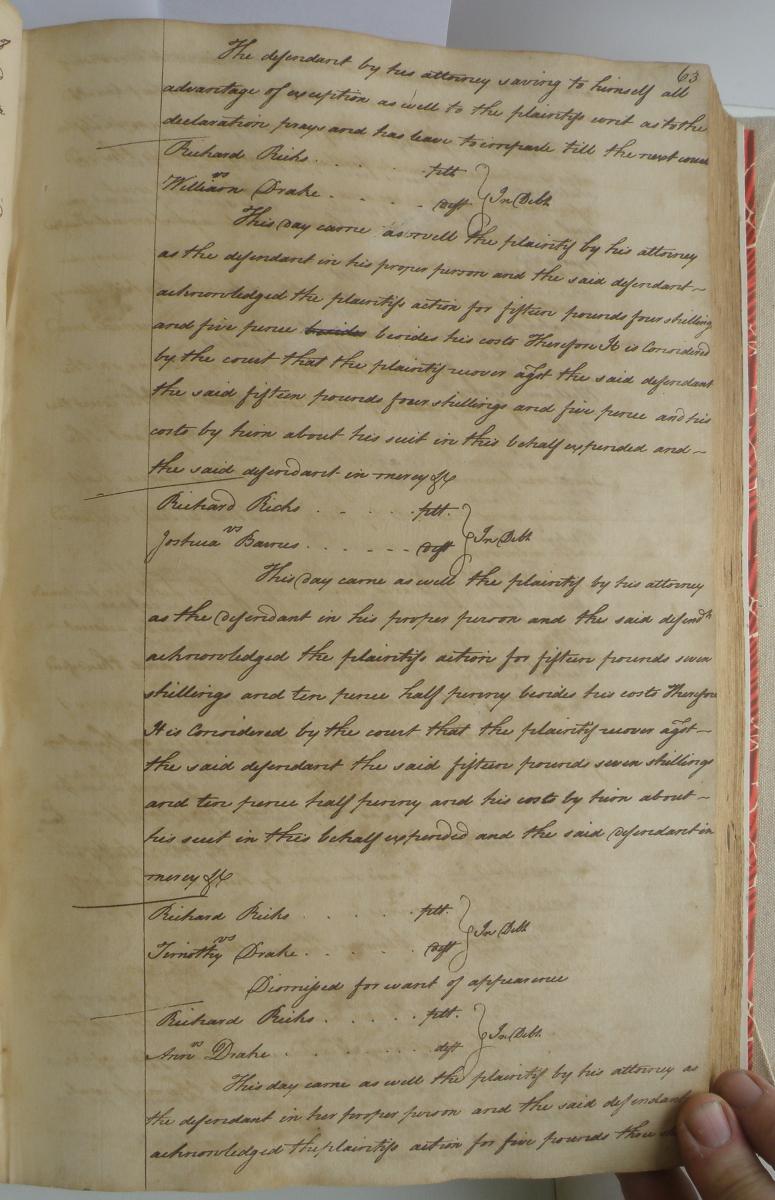 63
The defendant by his attorney saving to himself all
advantage of exception as well to the plaintifs writ as to the
declaration prays and has leave to imparle till the next court
Richard Ricks . . . . . plt.
vs } In Debt
William Drake . . . . . deft
This day came as well the plaintif by his attorney
as the defendant in his proper person and the said defendant
acknowledged the plaintifs action for fifteen pounds four shilling
and five pence besides besides his costs Therefore It is Considered
by the court that the plaintif recover agst the said defendant
the said fifteen pounds four shillings and five pence and his
costs by him about his suit in this behalf expended and
the said defendant in mercy &c
Richard Ricks . . . . . plt.
vs } In Debt
Joshua Barnes . . . . . . deft
This day came as well the plaintif by his attorney
as the defendant in his proper person and the said defendt
acknowledged the plaintifs action for fifteen pounds seven
shillings and ten pence half penny besides his costs Therefore
It is Considered by the court that the plaintif recover agst
the said defendant the said fifteen pounds seven shillings
and ten pence half penny and his costs by him about
his suit in this behalf expended and the said defendant in
mercy &c
Richard Ricks . . . . . plt.
vs } In Debt
Timothy Drake . . . . . deft
Dismissed for want of appearence
Richard Ricks . . . . . plt.
vs } In Debt
Ann Drake . . . . . . deft
This day came as well the plaintif by his attorney as
the defendant in her proper person and the said defendant
acknowledged the plaintifs action for five pounds three